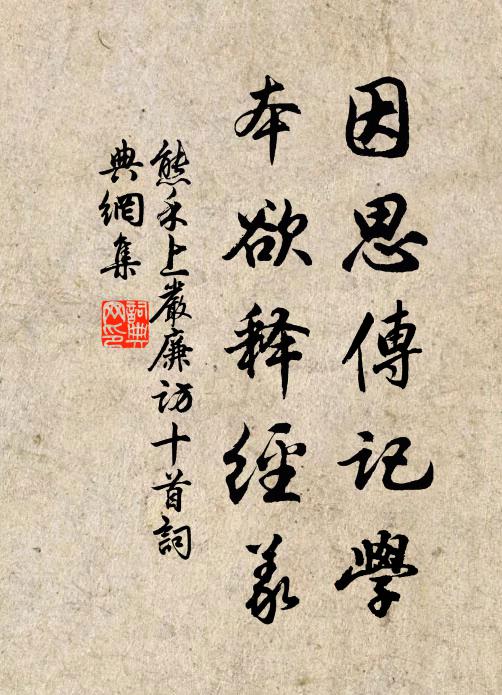 因思傳記學
本欲釋經義
熊禾上嚴廉訪十首詞
典網集
詞典
网印